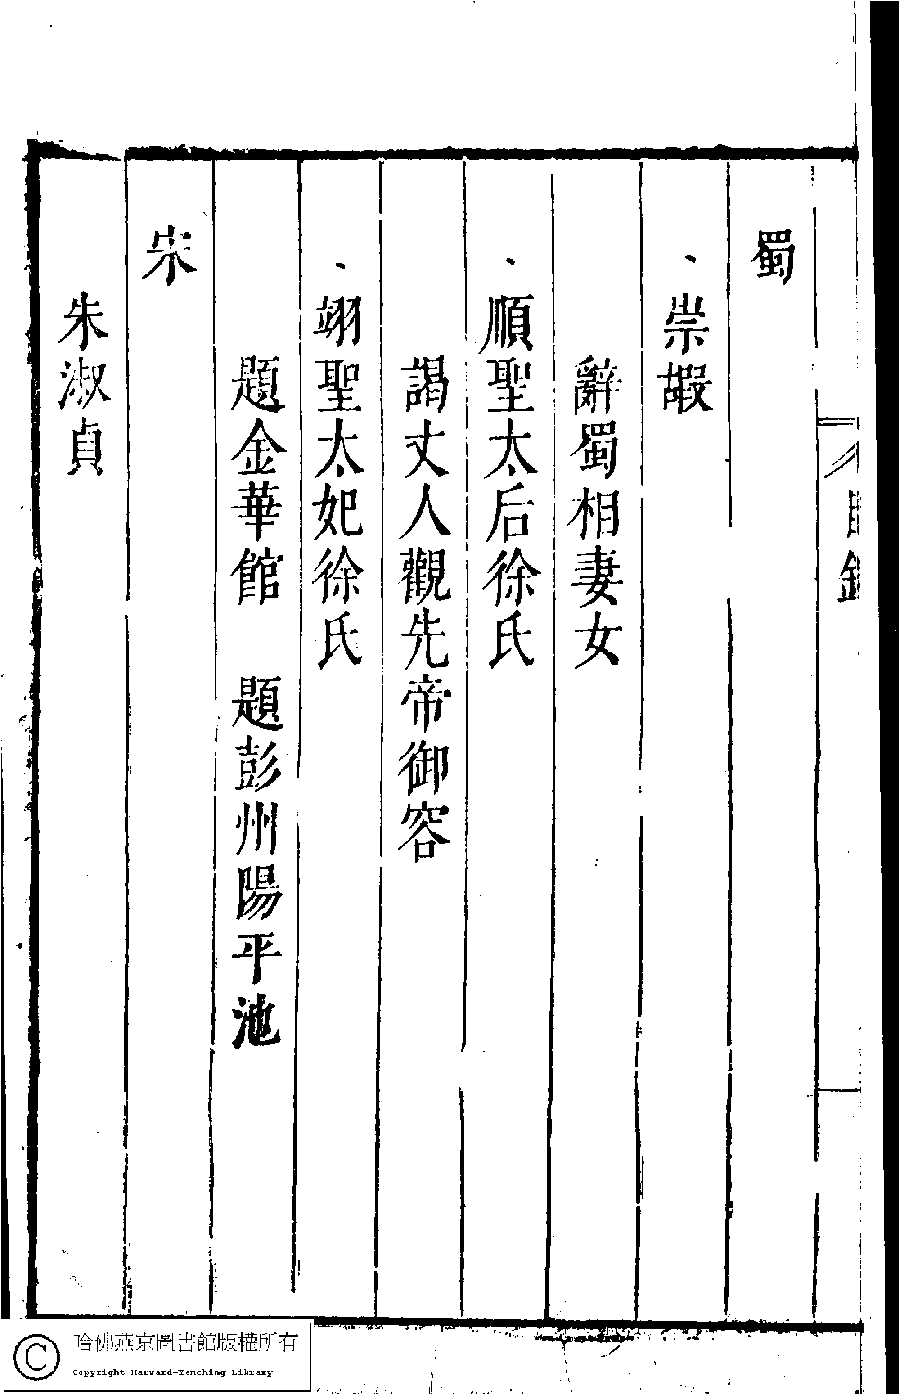 目錄
蜀
、崇嘏
辭蜀相妻女
、順聖太后徐氏
謁丈人觀先帝御容
、翊聖太妃徐氏
題金華館　題彭州陽平池
宋
朱淑貞
哈佛燕京圖書館版權所有
Copyright Harvard-Yenching Library